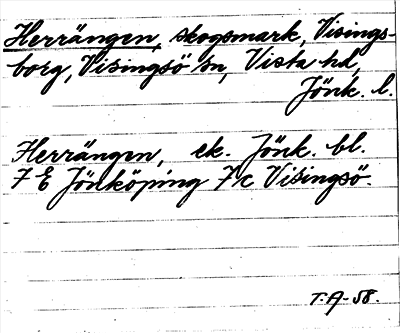 Herrängen, skogsmark, Visings-
borg, Visingsö sn, Vista hd,
Jönk. l.
Herrängen, ek. Jönk. bl.
7 E Jönköping 7 c Visingsö.
T. A-58.